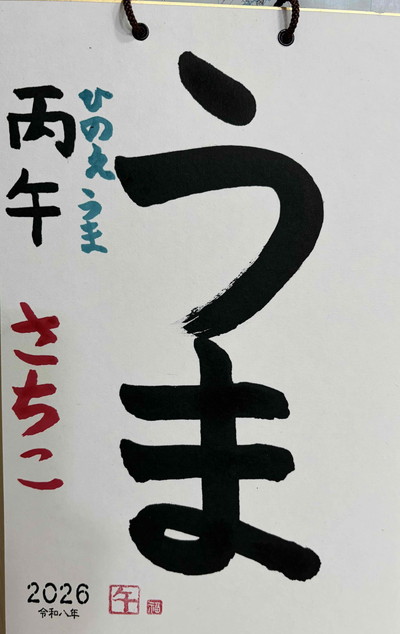 うま
ひのえ うま
丙午
さちこ
2026
令和八年
午
福